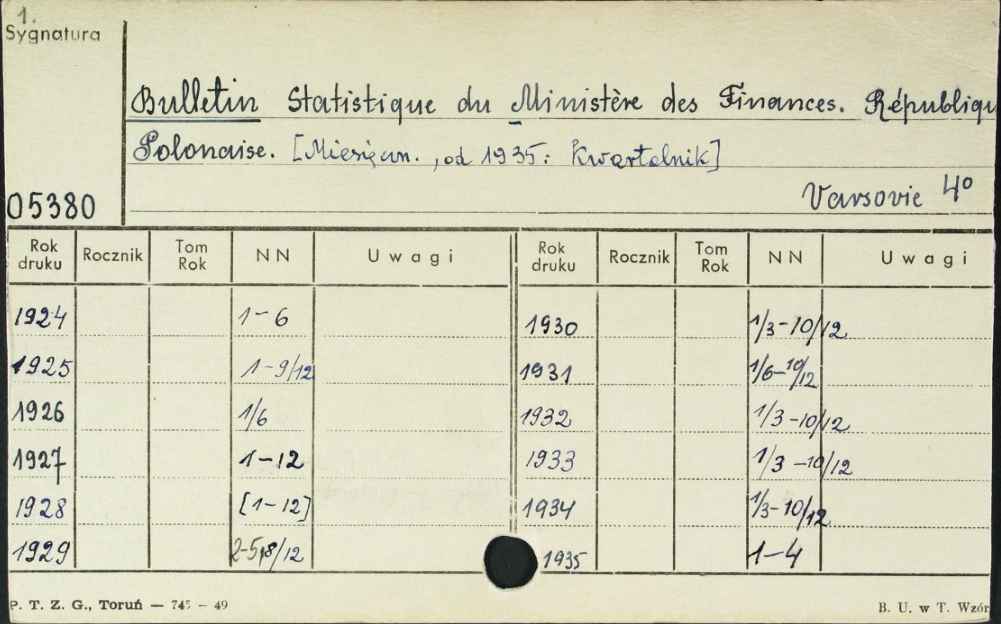 1.
Sygnatura
Bulletin Statistique du Ministère des Finances. Républiqu
Polonaise. [Miesięczn., od 1935: Kwartalnik]
Varsovie 4º
05380
Rok druku Rocznik Tom Rok NN Uwagi Rok druku Rocznik Tom Rok NN Uwagi
1924 1-6 1930 1/3-10/12
1925 1-9/12 1931 1/6-10/12
1926 1/6 1932 1/3-10/12
1927 1-12 1933 1/3-10/12
1928 [1-12] 1934 1/3-10/12
1929 2-5, 8/12 1935 1-4
P. T. Z. G., Toruń — 745 - 49 B. U. w T. Wzór